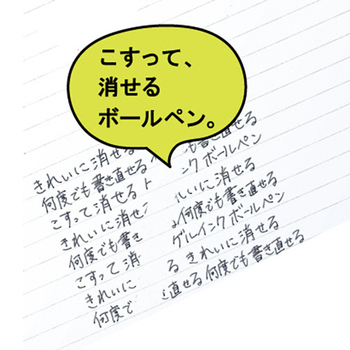 こすって、
消せる
ボールペン。
も書き直せる
きれいに消せる
ンクボールペン
何度でも書き直せる
いに消せる
こすって消せる
何度でも書き直せる
きれいに消せ
ゲルインクボールペン
何度でも書き
る きれいに消せる
こすって消
直せる何度でも書き直せる
きれいに
何度で